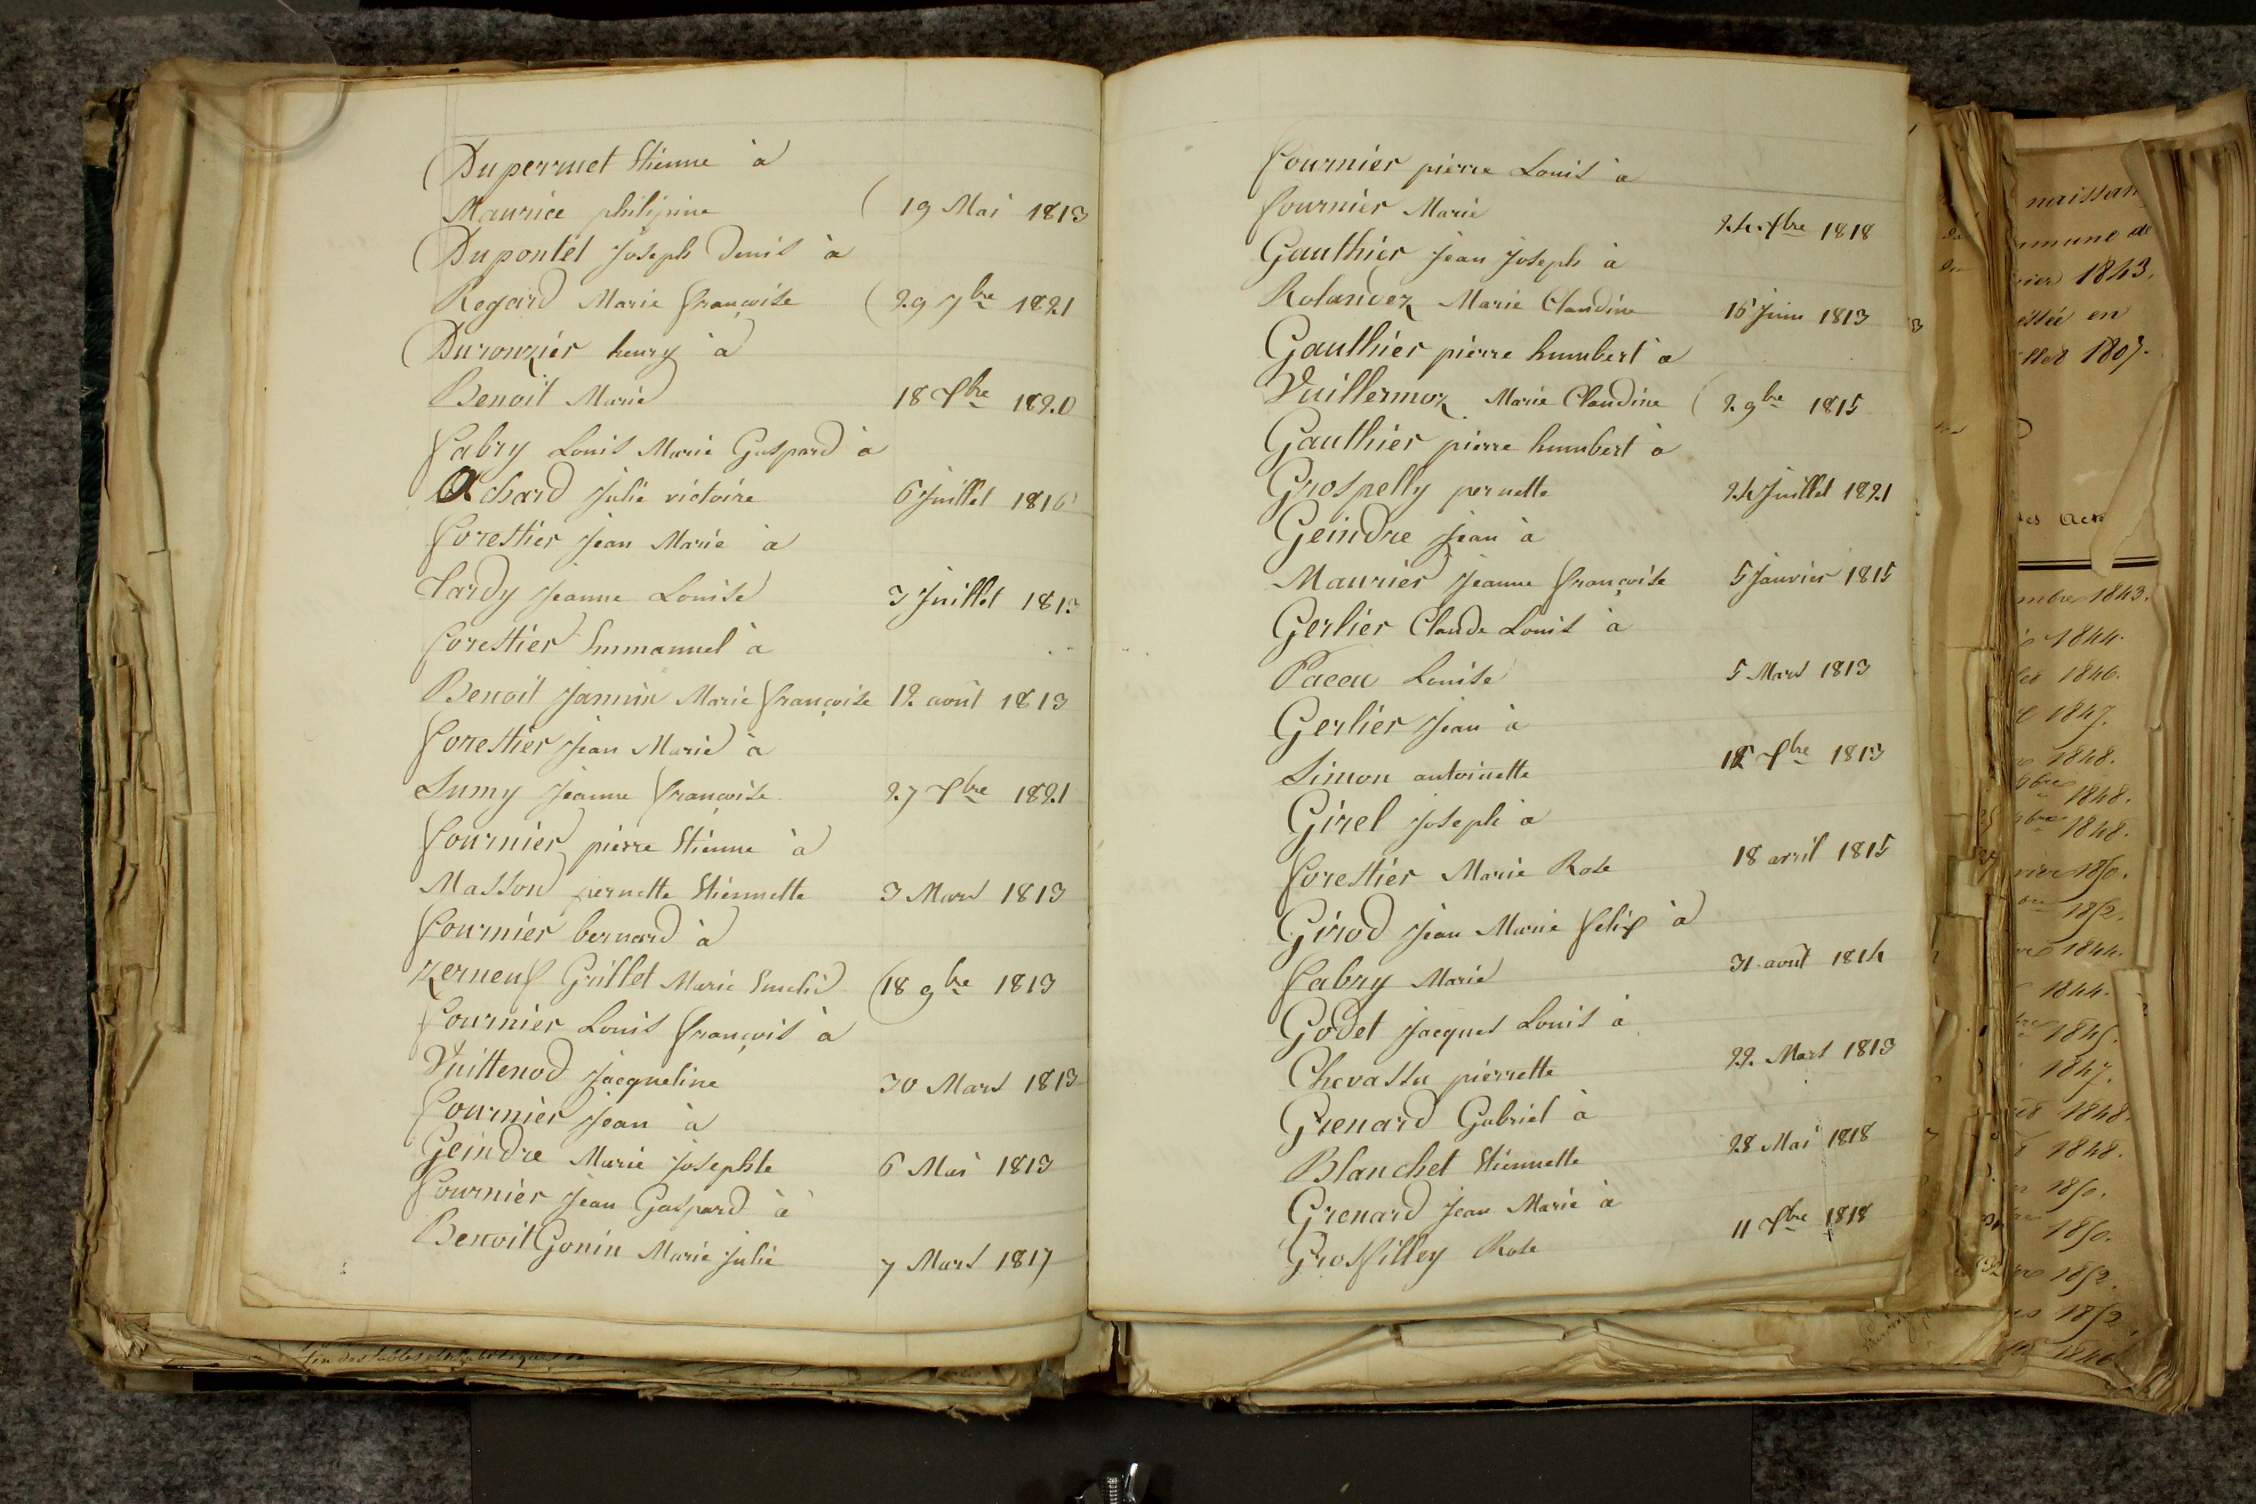 Duperruet Etienne à
Maurice philipine ( 19 Mai 1813
Dupontet Joseph Denis à
Regard Marie françoise ( 29 7bre 1821
Durouzier henry à
Benoit Marie 18 Xbre 1820
fabry Louis Marie Gaspard à
Achard Julie victoire 6 Juillet 1816
forestier Jean Marie à
Tardy Jeanne Louise 3 Juillet 1813
forestier Emmanuel à
Benoit Jannin Marie françoise 12 août 1813
forestier Jean Marie à
Lumy Jeanne françoise 27 Xbre 1821
fournier pierre Etienne à
Masson pernette Etiennette 3 Mars 1813
fournier bernard à
Zerneuf Grillet Marie Emelie (18 9bre 1813
fournier Louis françois à
Vuittenod Jacqueline 30 Mars 1813
fournier Jean à
Geindre Marie Josephte 6 Mai 1813
fournier Jean Gaspard à
Benoit Gonin Marie Julie 7 Mars 1817
fournier pierre Louis à
fournier Marie 24 Xbre 1818
Gauthier Jean Joseph à
Rolandez Marie Claudine 16 Juin 1813
Gauthier pierre humbert à
Vuillermoz Marie Claudine ( 2 9bre 1815
Gauthier pierre humbert à
Grospelly pernette 24 Juillet 1821
Geindre Jean à
Maurier Jeanne françoise 5 Janvier 1815
Gerlier Claude Louis à
Pacou Louise 5 Mars 1813
Gerlier Jean à
Simon antoinette Xbre 1813
Girel Joseph à
forestier Marie Rose 18 avril 1815
Girod Jean Marie felix à
fabry Marie 31 août 1814
Godet Jacques Louis à
Chevassu pierrette 22 Mars 1813
Grenard Gabriel à
Blanchet Etiennette 28 Mai 1818
Grenard Jean Marie à
Grosfilley Rose 11 Xbre 1818
naissan
mmune de
vier 1843,
essée en
1807.
es Act
mbre 1843.
1844.
1846.
1847.
1848.
9bre 1848.
bre 1848.
1850.
1852.
1844.
1844.
1845.
1847.
1848.
1848.
1850.
1850.
1852.
1852,
1846